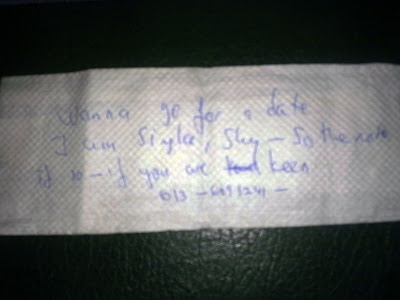 Wanna go for a date
I am Single, Shy - So the note
if so - if you are keen